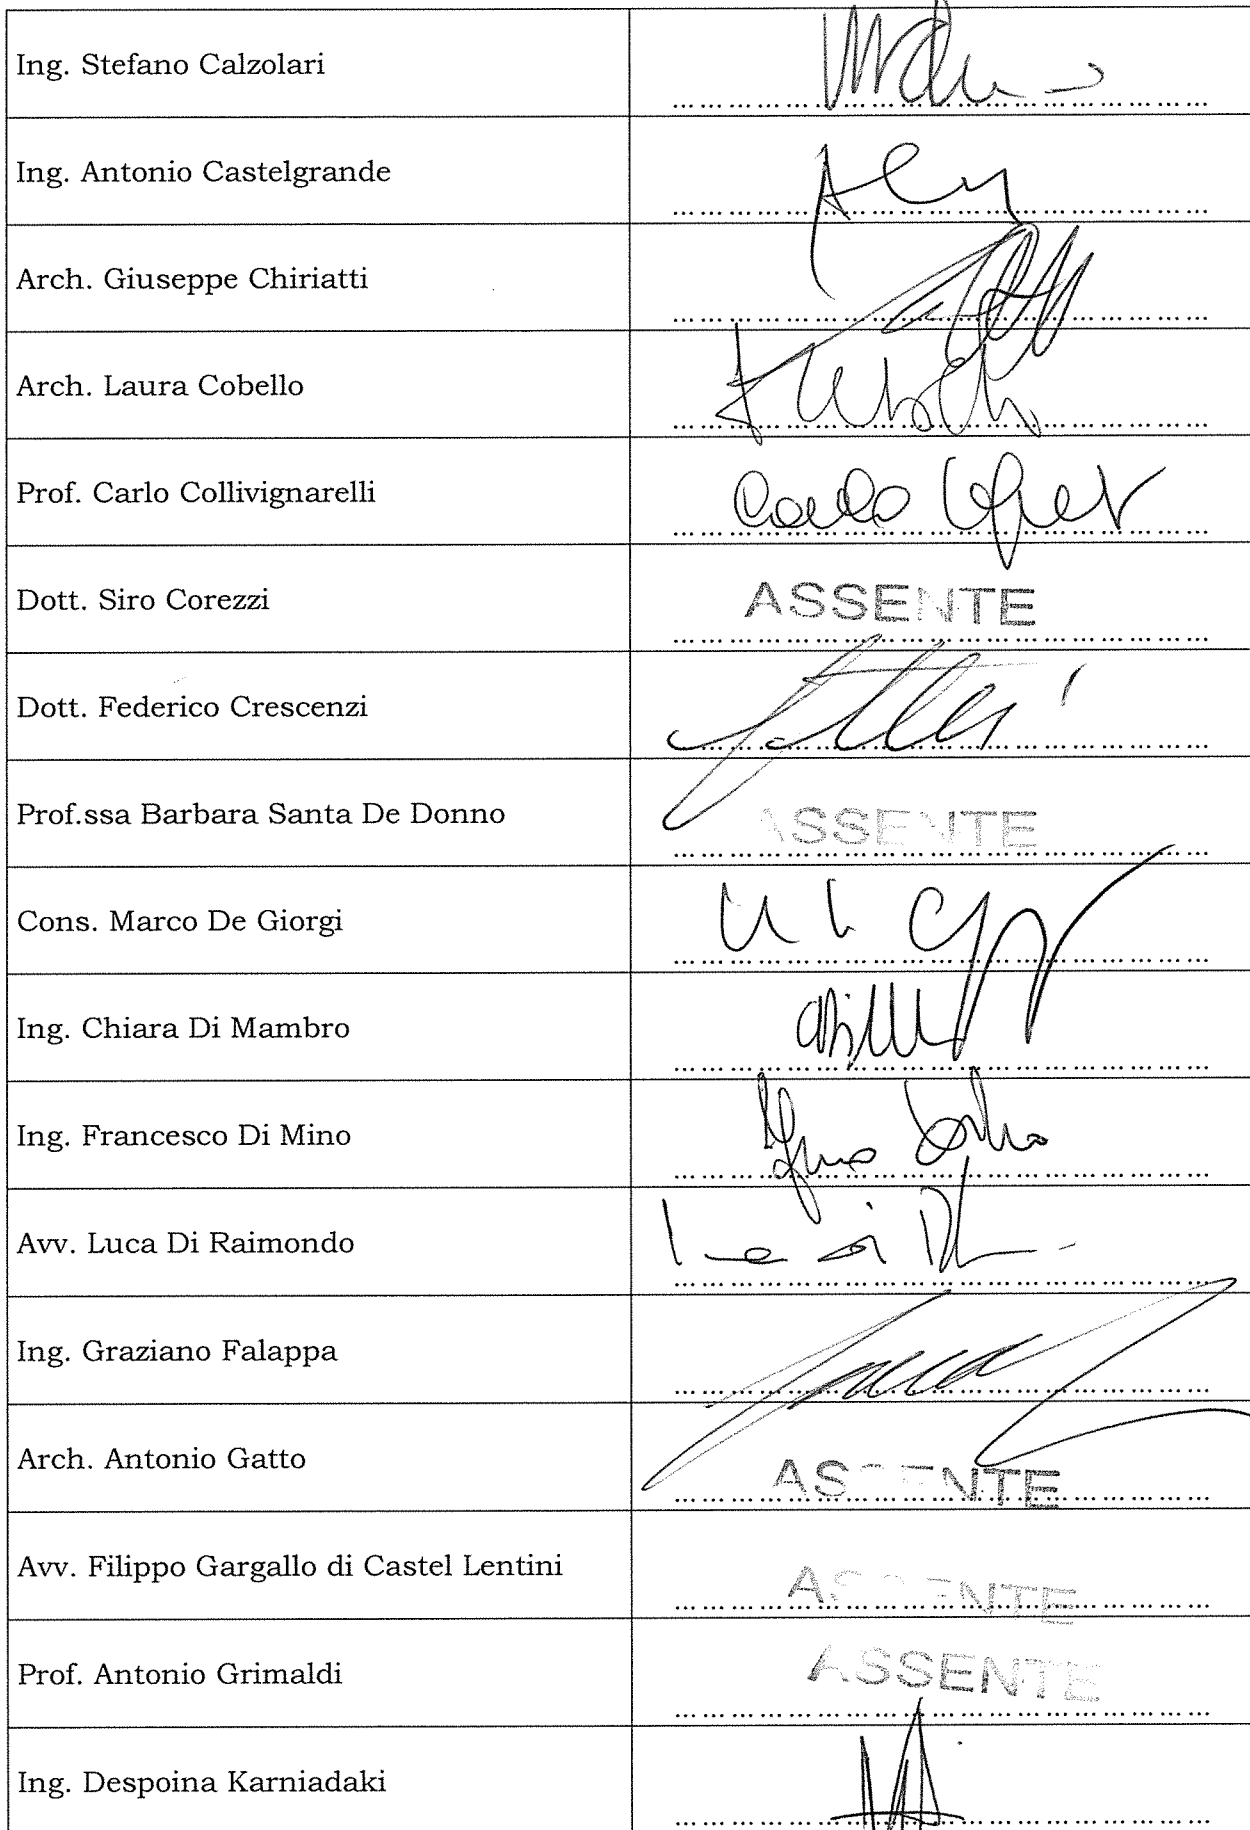 Ing. Stefano Calzolari
Ing. Antonio Castelgrande
Arch. Giuseppe Chiriatti
Arch. Laura Cobello
Prof. Carlo Collivignarelli
Dott. Siro Corezzi ASSENTE
Dott. Federico Crescenzi
Prof.ssa Barbara Santa De Donno ASSENTE
Cons. Marco De Giorgi
Ing. Chiara Di Mambro
Ing. Francesco Di Mino
Avv. Luca Di Raimondo
Ing. Graziano Falappa
Arch. Antonio Gatto ASSENTE
Avv. Filippo Gargallo di Castel Lentini ASSENTE
Prof. Antonio Grimaldi ASSENTE
Ing. Despoina Karniadaki